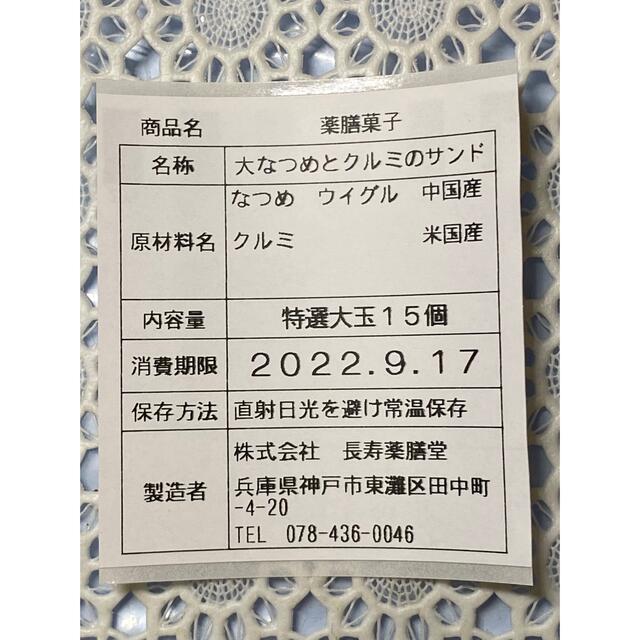 商品名 薬膳菓子
名称 大なつめとクルミのサンド
なつめ ウイグル 中国産
原材料名 クルミ 米国産
内容量 特選大玉15個
消費期限 2022.9.17
保存方法 直射日光を避け常温保存
株式会社 長寿薬膳堂
製造者 兵庫県神戸市東灘区田中町
-4-20
TEL 078-436-0046